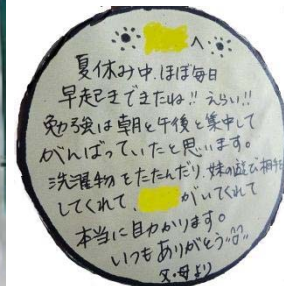 へ
夏休み中、ほぼ毎日
早起きできたね!! えらい!!
勉強は朝と午後と集中して
がんばっていたと思います。
洗濯物をたたんだり、妹の遊び相手を
してくれて、がいてくれて
本当に助かります。
いつもありがとう
父・母より